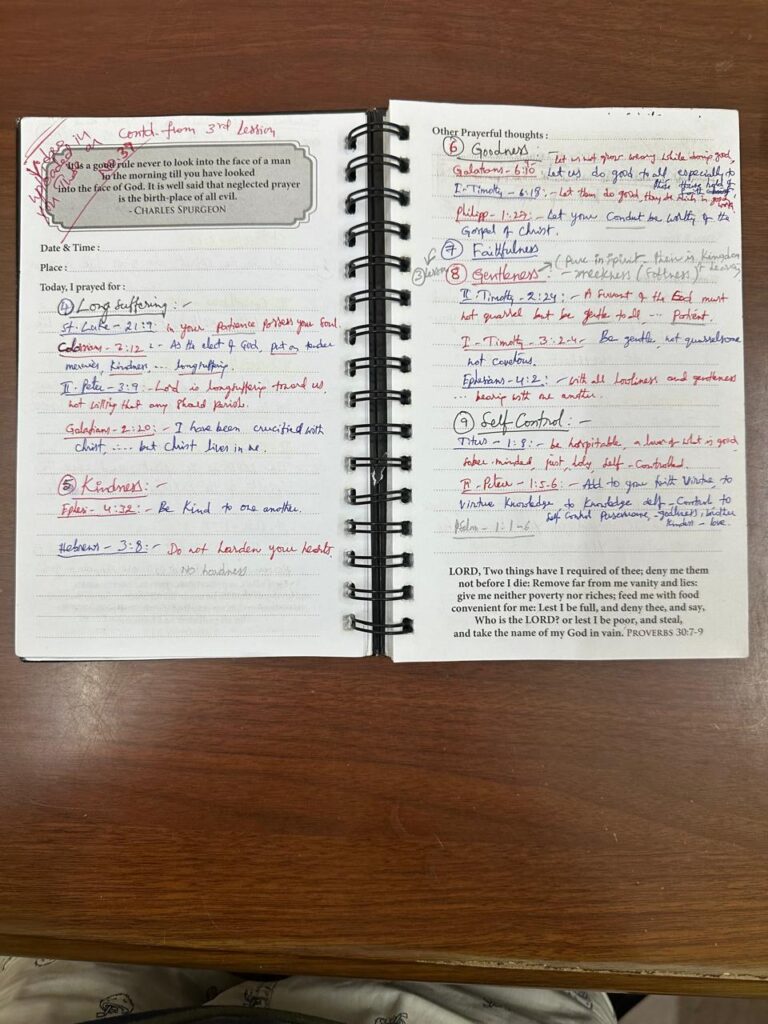 Video
uploaded in
You Tube on
Contd. from 3rd Lession
It is a good rule never to look into the face of a man
in the morning till you have looked
into the face of God. It is well said that neglected prayer
is the birth-place of all evil.
- CHARLES SPURGEON
Date & Time :
Place :
Today, I prayed for :
④ Long Suffering : -
St. Luke - 21:9: In your Patience Possess your Soul.
Colossians - 3:12 :- As the elect of God, put on tender
mercies, kindness, ... longsuffering.
II - Peter - 3:9 :- Lord is longsuffering toward us,
not willing that any should perish.
Galatians - 2:20 :- I have been crucified with
Christ, ..... but Christ lives in me.
⑤ Kindness : -
Ephes - 4:32 :- Be Kind to one another.
Hebrews - 3:8 :- Do not harden your hearts.
NO hardness
Other Prayerful thoughts :
⑥ Goodness : Let us not grow weary while doing good,
Galatians - 6:10 : Let us do good to all, especially to
I - Timothy - 6:18 :- Let them do good, they be rich in good
Philipp - 1:27 :- Let your Conduct be worthy of the
Gospel of Christ.
⑦ Faithfulness
⑧ Gentleness : - meekness (Softness)
(Pure in Spirit theirs is Kingdom
II - Timothy - 2:24 :- A Servant of the God must
not quarrel but be gentle to all ... Patient.
I - Timothy - 3:2-4 - Be gentle, not quarrelsome
not covetous.
Ephesians - 4:2 : - With all lowliness and gentleness
... bearing with one another.
⑨ Self Control : -
Titus - 1:8 : - be hospitable, a lover of what is good
sober-minded, just, holy, self-Controlled.
II - Peter - 1:5-6 :- Add to your faith Virtue to
Virtue Knowledge to Knowledge self-Control to
Self Control Perseverance, - godliness, brother
kindness - love.
Psalm - 1:1-6
LORD, Two things have I required of thee; deny me them
not before I die: Remove far from me vanity and lies:
give me neither poverty nor riches; feed me with food
convenient for me: Lest I be full, and deny thee, and say,
Who is the LORD? or lest I be poor, and steal,
and take the name of my God in vain. PROVERBS 30:7-9